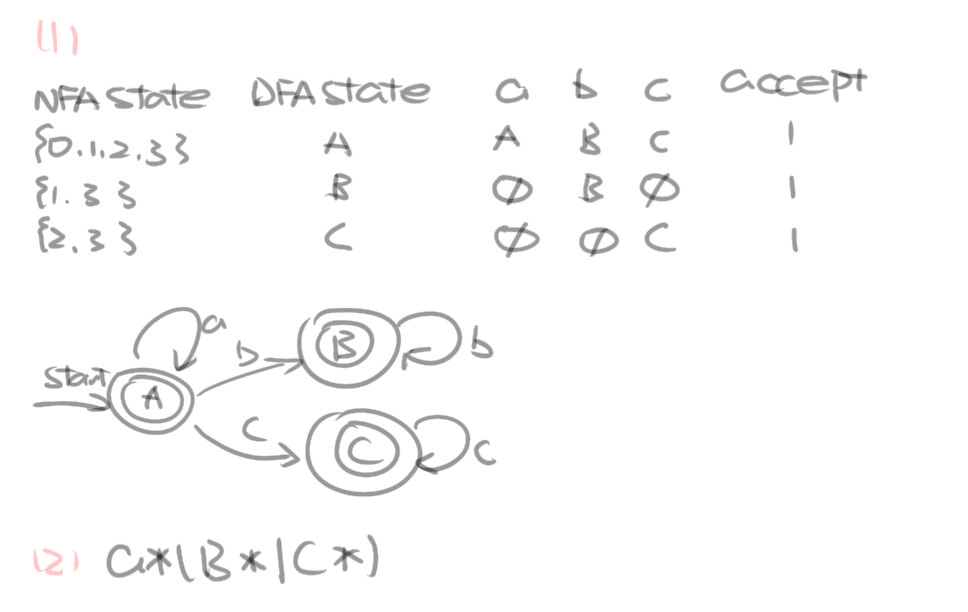 (1)
NFA State DFA state a b c accept
{0.1.2.3} A A B C 1
{1.3} B ∅ B ∅ 1
{2.3} C ∅ ∅ C 1
a
B
b
b
start
A
c
C
c
(2) a*(B*|C*)